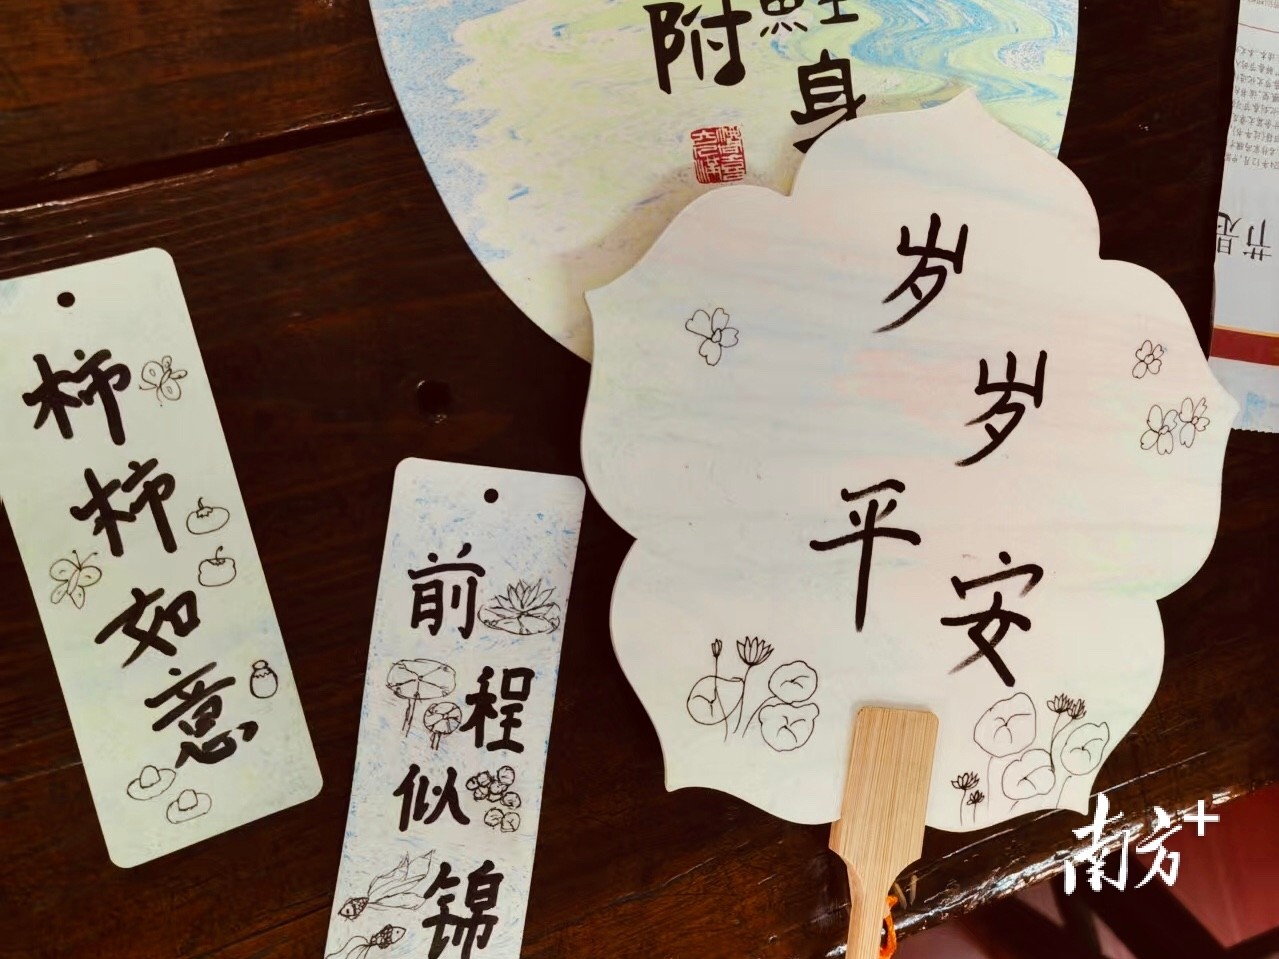 附
身
岁
岁
平
安
柿
柿
如
意
前
程
似
锦
南方+